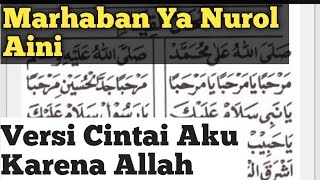 Marhaban Ya Nurol
Aini
صَلَّى اللهُ عَلَى مُحَمَّدْ
صَلَّى اللهُ عَلَيْهِ وَسَلَّمْ
مَرْحَبًا يَا مَرْحَبًا يَا مَرْحَبًا
مَرْحَبًا جَدَّ الْحُسَيْنِ مَرْحَبًا
يَا نَبِي سَلَامْ عَلَيْكَ
يَا رَسُولْ سَلَامْ عَلَيْكَ
يَا حَبِيبْ
Versi Cintai Aku
Karena Allah